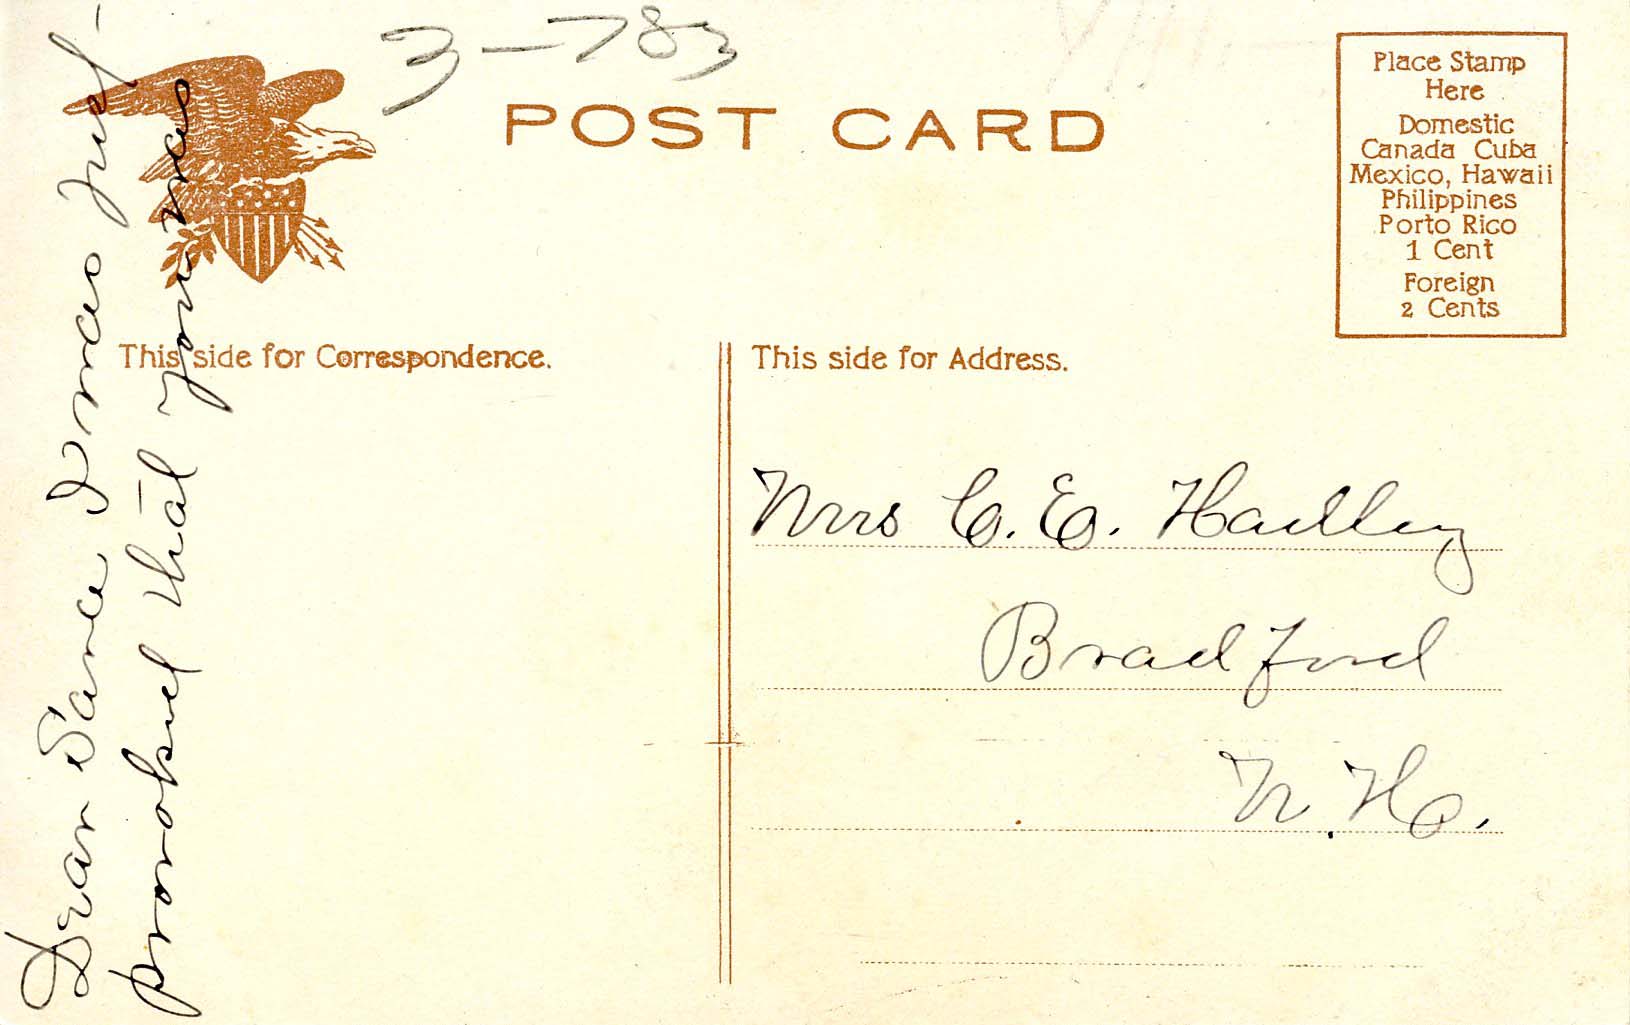 3-783
POST CARD
Place Stamp
Here
Domestic
Canada Cuba
Mexico, Hawaii
Philippines
Porto Rico
1 Cent
Foreign
2 Cents
This side for Correspondence.
This side for Address.
Mrs C. E. Hadley
Bradford
N. H.
Dear I was just
provoked that you was